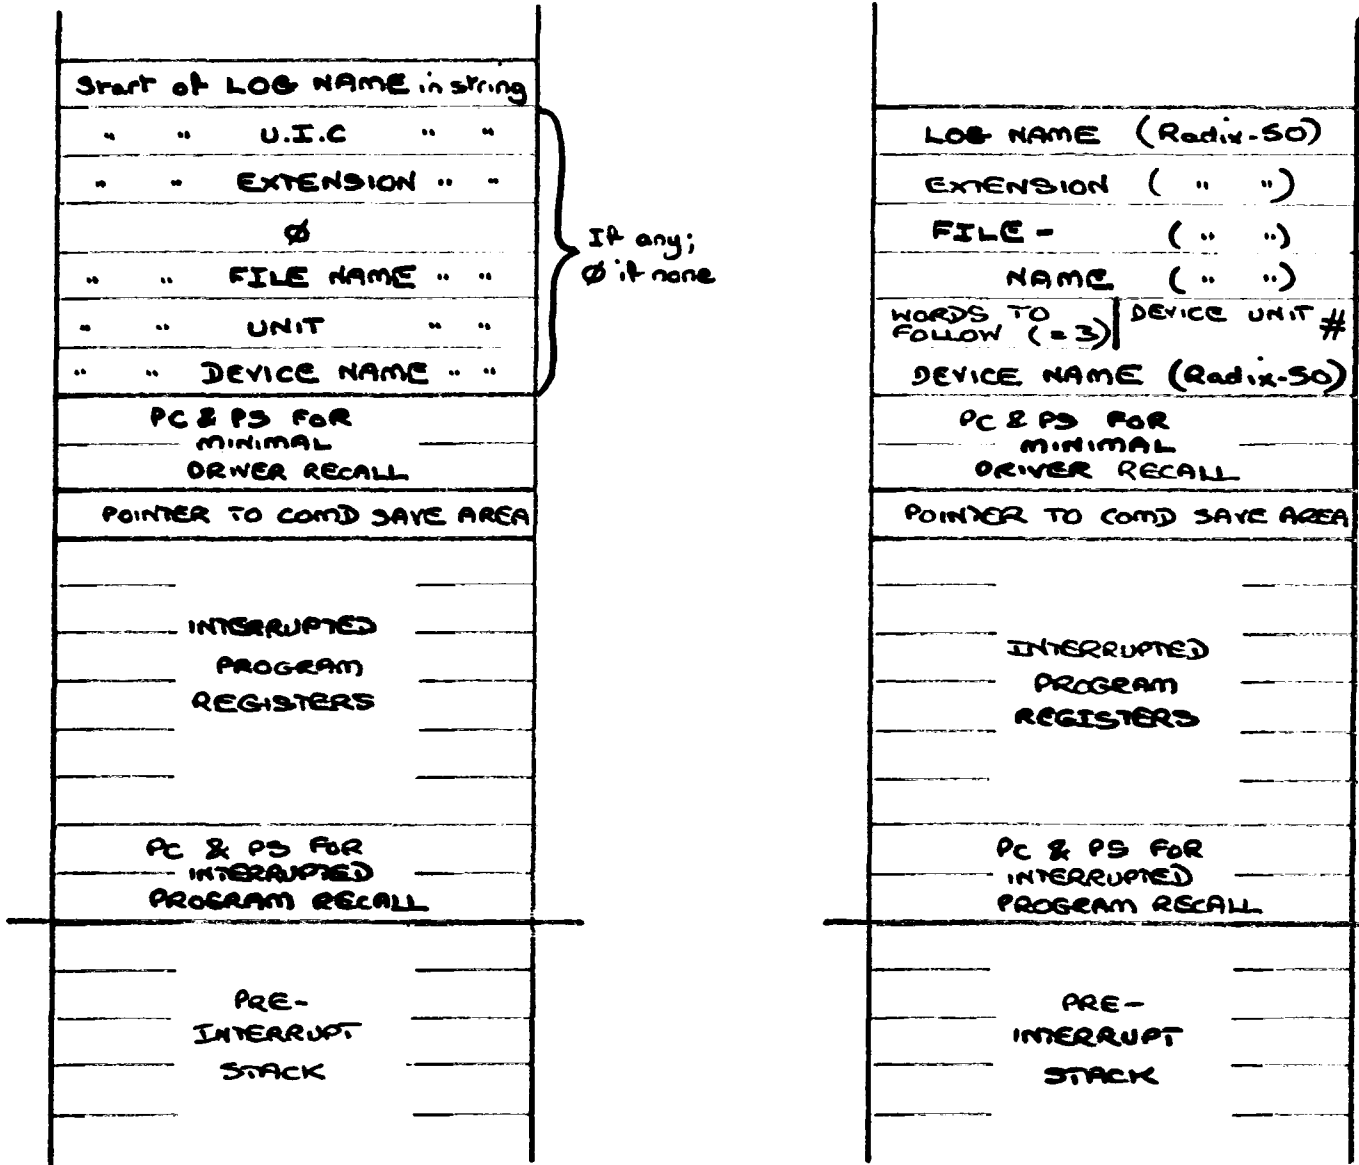 Start of LOG NAME in string
" " U.I.C " "
" " EXTENSION " "
Ø
" " FILE NAME " "
" " UNIT " "
" " DEVICE NAME " "
If any;
Ø if none
PC & PS FOR
MINIMAL
DRIVER RECALL
POINTER TO COMD SAVE AREA
INTERRUPTED
PROGRAM
REGISTERS
PC & PS FOR
INTERRUPTED
PROGRAM RECALL
PRE-
INTERRUPT
STACK
LOG NAME (Radix-50)
EXTENSION ( " " )
FILE - ( " " )
NAME ( " " )
WORDS TO
FOLLOW (=3)
DEVICE UNIT #
DEVICE NAME (Radix-50)
PC & PS FOR
MINIMAL
DRIVER RECALL
POINTER TO COMD SAVE AREA
INTERRUPTED
PROGRAM
REGISTERS
PC & PS FOR
INTERRUPTED
PROGRAM RECALL
PRE-
INTERRUPT
STACK